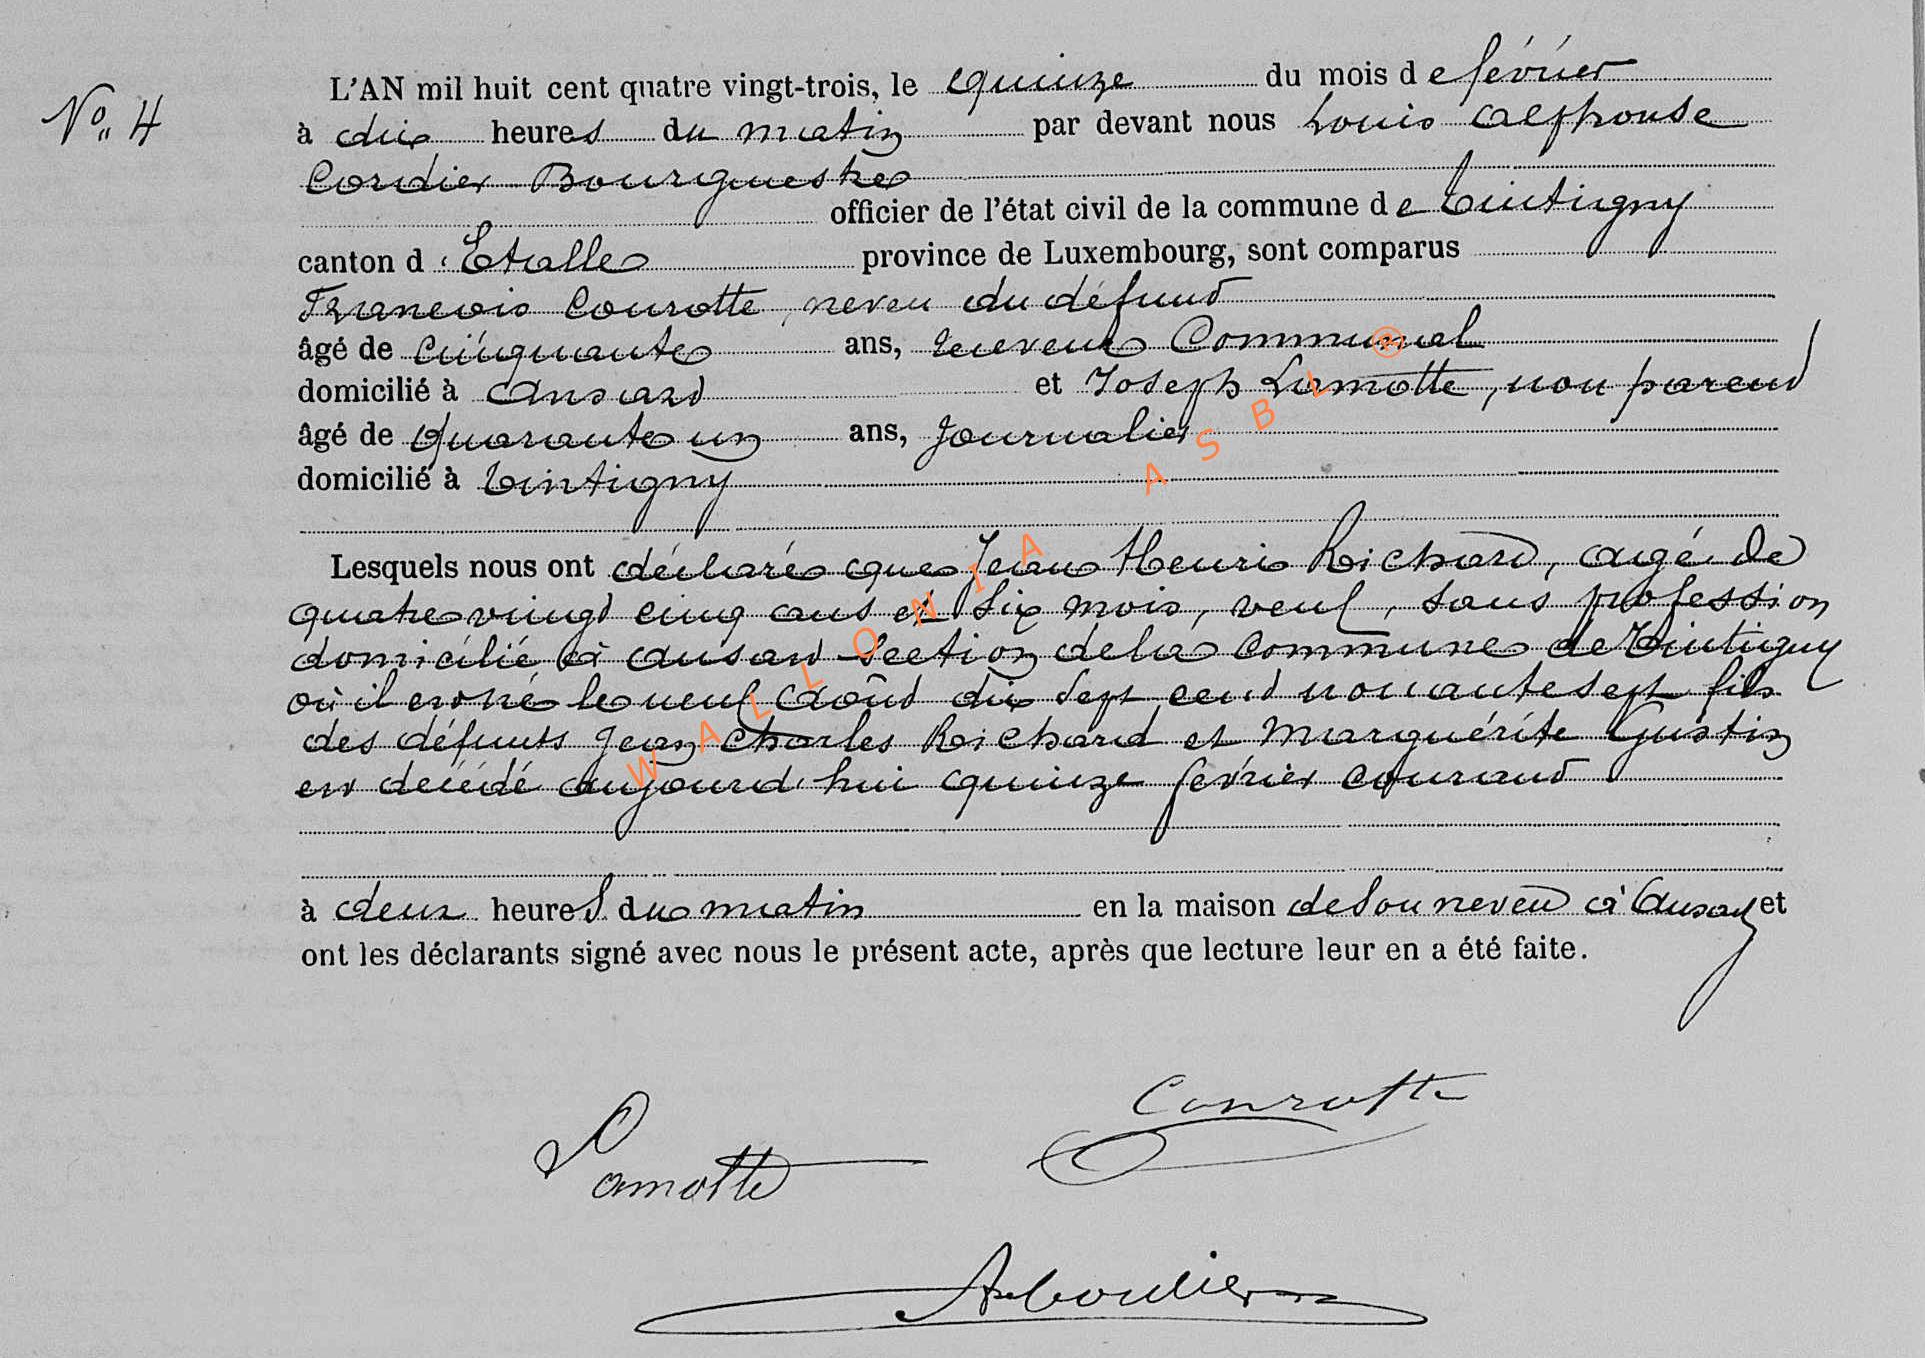 No. 4
L'AN mil huit cent quatre vingt-trois, le quinze du mois de février
à dix heures du matin par devant nous Louis Alphonse
Cordier Bourgmestre
officier de l'état civil de la commune de Tintigny
canton d'Etalle province de Luxembourg, sont comparus
François Conrotte, neveu du défunt
âgé de cinquante ans, receveur Communal
domicilié à Ansart et Joseph Lamotte, non parent
âgé de quarante un ans, Journalier
domicilié à Tintigny
Lesquels nous ont déclaré que Jean Henri Richard, agé de
quatre vingt cinq ans et six mois, veuf, sans profession
domicilié à Ansart Section de la commune de Tintigny
où il est né le neuf Août dix sept cent nonante sept fils
des défunts Jean Charles Richard et Marguérite Gustin
est décédé aujourd'hui quinze février courant
à deux heures du matin en la maison de son neveu à Ansart et
ont les déclarants signé avec nous le présent acte, après que lecture leur en a été faite.
Conrotte
Lamotte
ACordier
WALLONIA ASBL ®